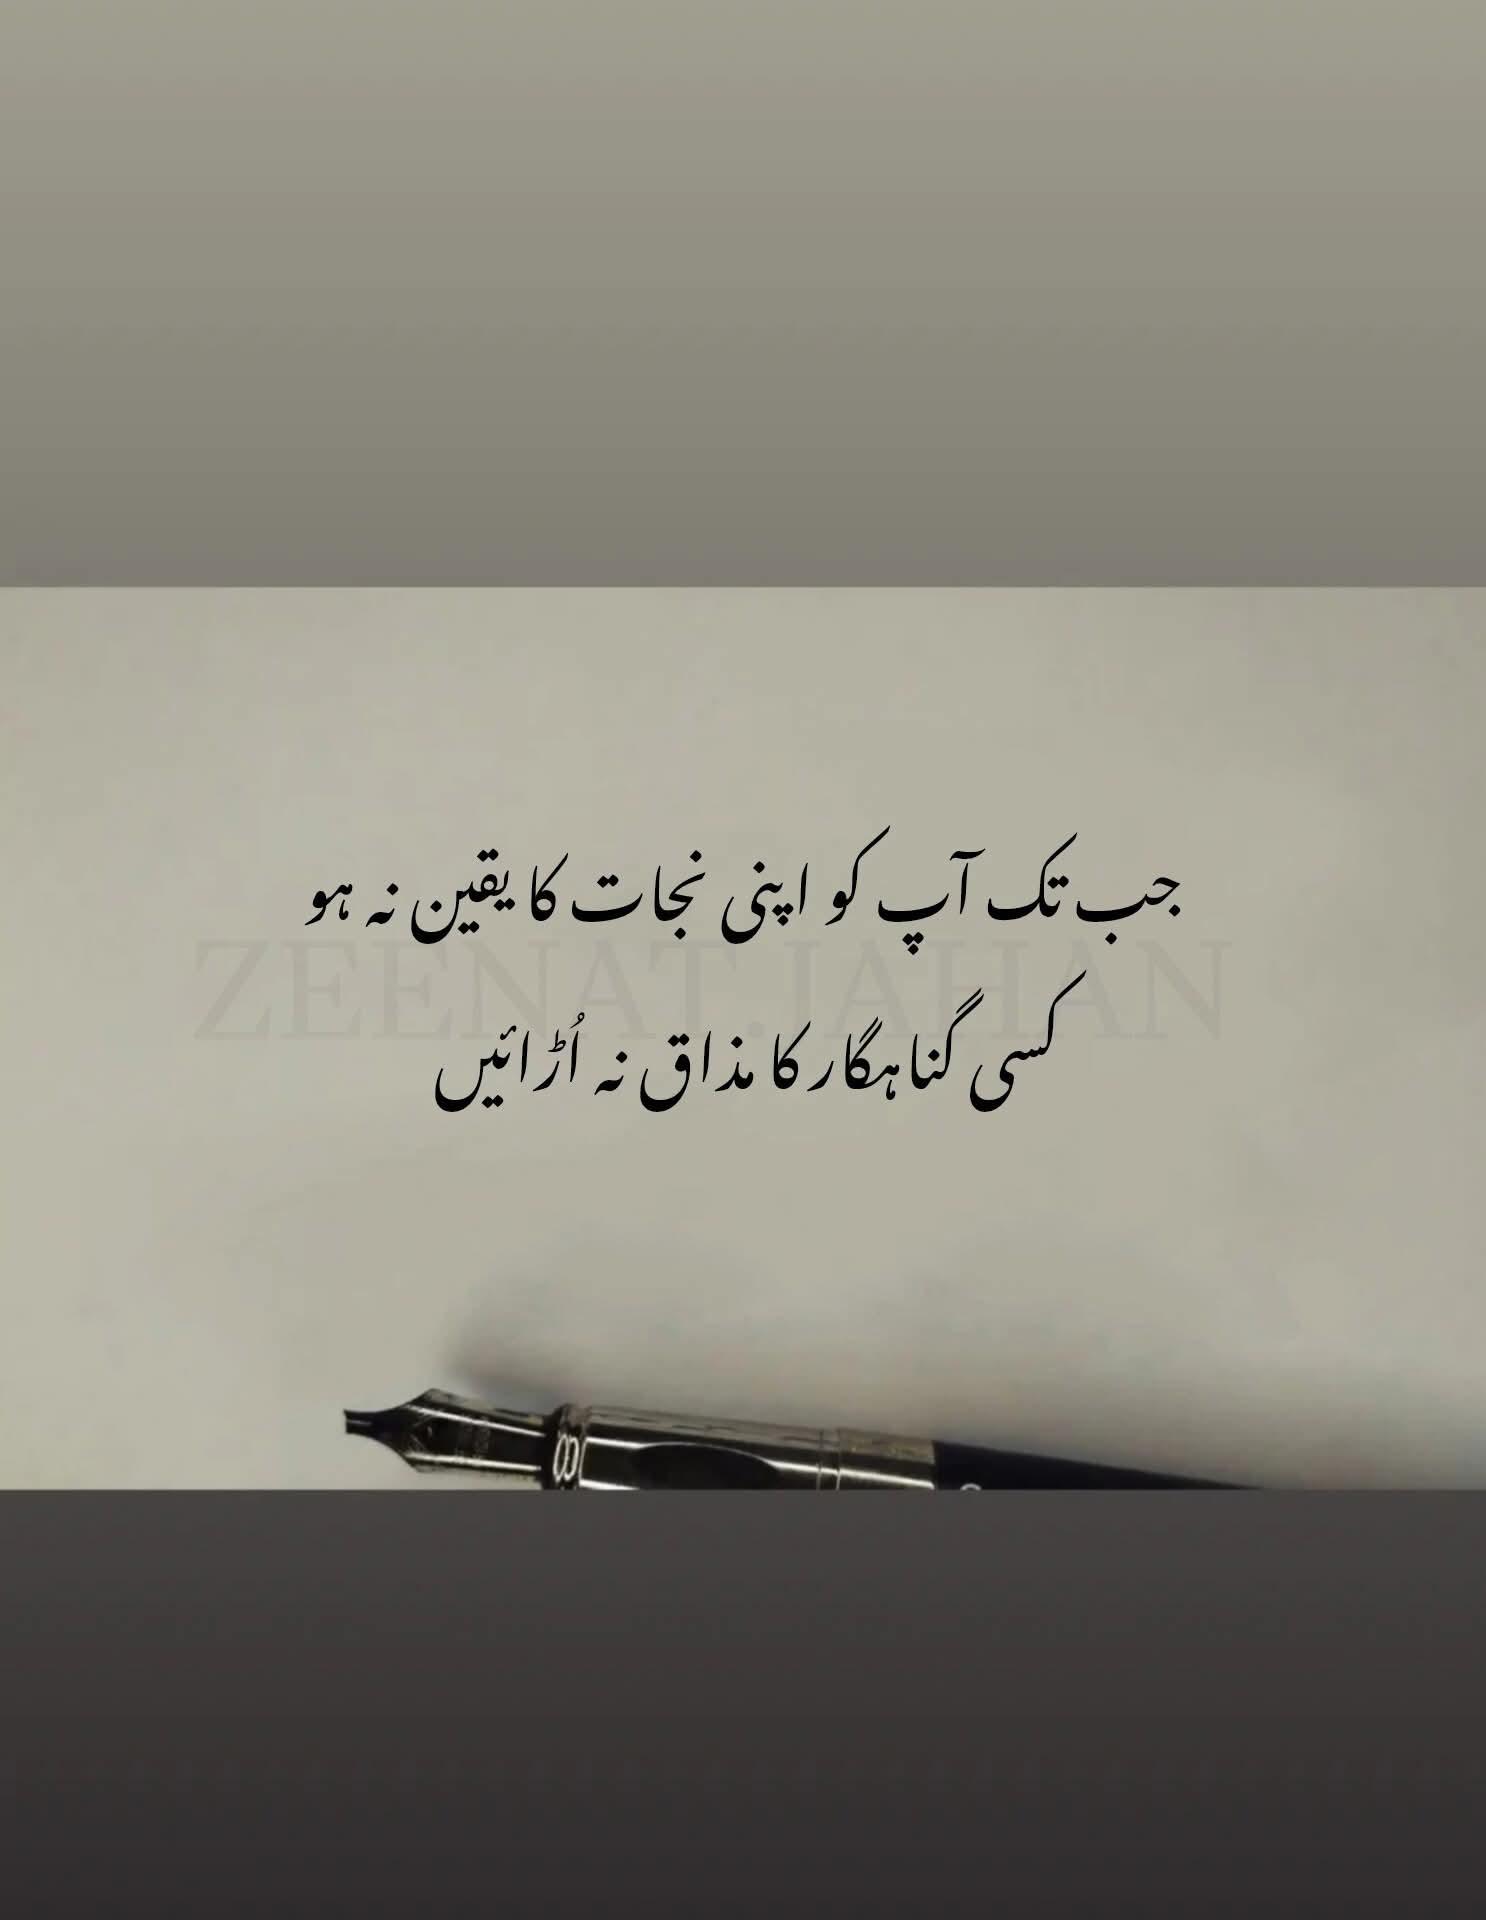 جب تک آپ کو اپنی نجات کا یقین نہ ہو
ZEENAT.JAHAN
کسی گناہگار کا مذاق نہ اُڑائیں